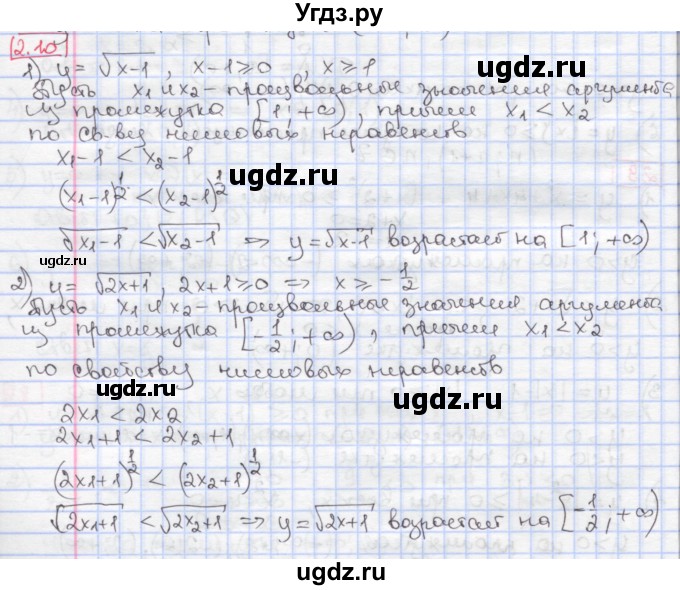 Угдз.ру
2.10
1) y = √(x-1), x-1 ≥ 0, x ≥ 1
Пусть x₁ и x₂ - произвольные значения аргумента
из промежутка [1; +∞), причем x₁ < x₂
по св-ву числовых неравенств
x₁-1 < x₂-1
ugdz.ru
(x₁-1)^½ < (x₂-1)^½
ugdz.ru
√(x₁-1) < √(x₂-1) ⇒ y = √(x-1) возрастает на [1; +∞)
ugdz.ru
2) y = √(2x+1), 2x+1 ≥ 0 ⇒ x ≥ -½
Пусть x₁ и x₂ - произвольные значения аргумента
из промежутка [-½; +∞), причем x₁ < x₂
ugdz.ru
по свойству числовых неравенств
ugdz.ru ugdz.ru
2x₁ < 2x₂
2x₁+1 < 2x₂+1
(2x₁+1)^½ < (2x₂+1)^½
ugdz.ru
√(2x₁+1) < √(2x₂+1) ⇒ y = √(2x+1) возрастает на [-½; +∞)
ugdz.ru ugdz.ru